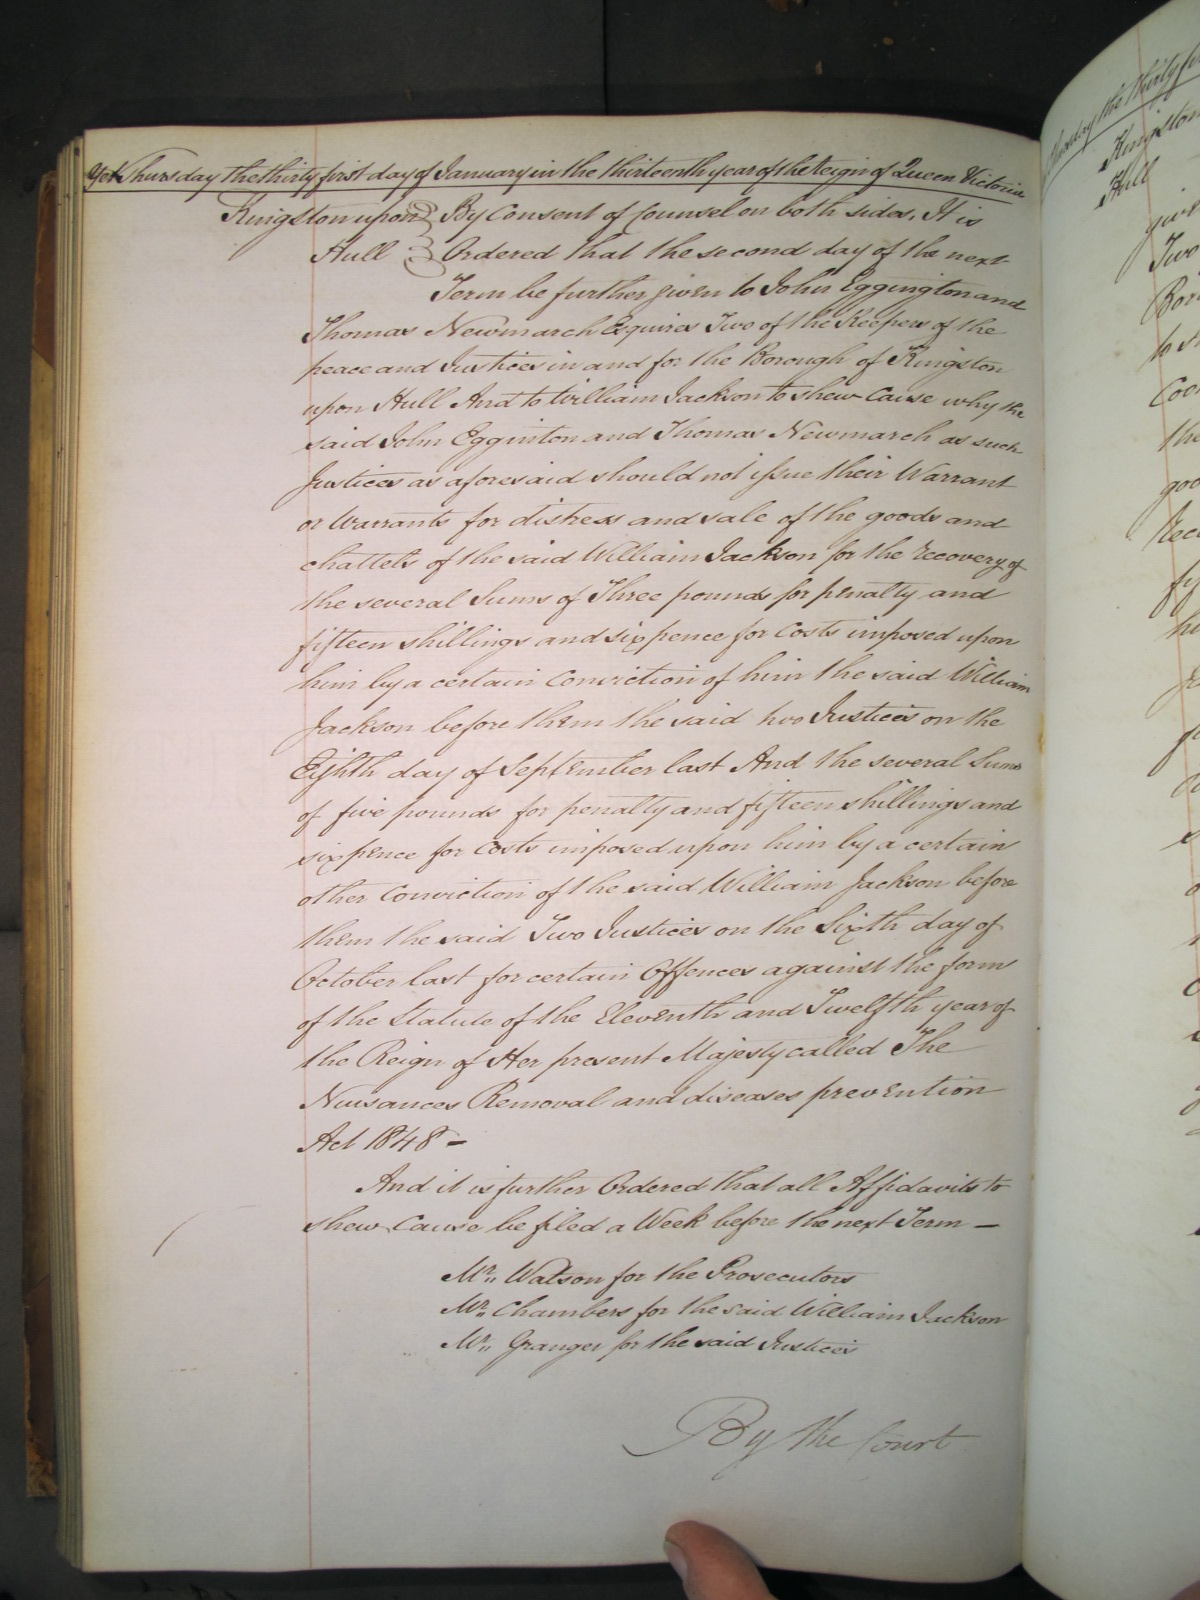 Yet Thursday the thirty first day of January in the thirteenth year of the Reign of Queen Victoria
Kingston upon By Consent of Counsel on both sides, It is
Hull Ordered that the second day of the next
Term be further given to John Eggington and
Thomas Newmarch Esquires Two of the Keepers of the
peace and Justices in and for the Borough of Kingston
upon Hull And to William Jackson to shew Cause why the
said John Egginton and Thomas Newmarch as such
Justices as aforesaid should not issue their Warrant
or Warrants for distress and sale of the goods and
chattels of the said William Jackson for the recovery of
the several Sums of Three pounds for penalty and
fifteen shillings and sixpence for Costs imposed upon
him by a certain Conviction of him the said William
Jackson before them the said two Justices on the
Eighth day of September last And the several Sums
of five pounds for penalty and fifteen shillings and
sixpence for Costs imposed upon him by a certain
other Conviction of the said William Jackson before
them the said Two Justices on the Sixth day of
October last for certain Offences against the form
of the Statute of the Eleventh and Twelfth year of
the Reign of Her present Majesty called The
Nuisances Removal and diseases prevention
Act 1848 –
And it is further Ordered that all Affidavits to
shew Cause be filed a Week before the next Term –
Mr. Watson for the Prosecutors
Mr. Chambers for the said William Jackson
Mr. Granger for the said Justices
By the Court
Thursday the thirty
Kingston
Hull
Two
to
the